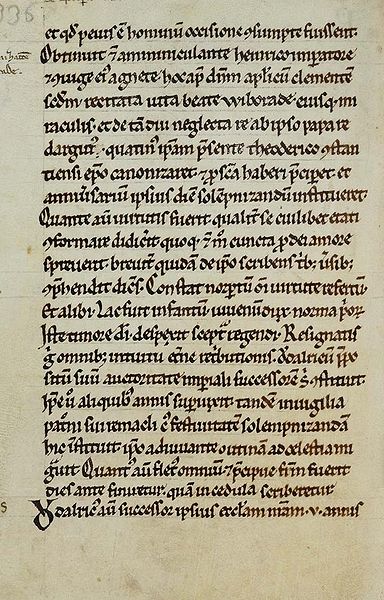 et qd peius e hominum occisione gsumpte fuissent.
Obtinuit & amminiculante heinrico imperatore
& iuge ei agnete hoc ap dnm aplicu clemente
sedm recitata uita beate wiborade eiusq mi
raculis. et de tam diu neglecta re ab ipso papa re
dargut. quatin ipam psente theoderico gstan
tiensi epo canonizaret. & p sca haberi pciper. et
anniusariu ipsius die solepnizandu institueret.
Quante au uirtutis fuerit qualit se cuilibet etati
gformare didicerit quoq & m cuncta p dei amore
spreuerit. breuit quida de ipo scribens
gphendit dices. Constat norptu oi uirtute refertu
Et alibi. Lac fuit infantum iuuenu dux norma
Iste timore di. despexit sceptra regendi. Resignatis
g omnib; intuitu etne retbutionis. Odalricu ppo
situm suu auctoritate imperiali successore s gstituit.
Ipse u aliquib annis supuixit. tandem in uigilia
patni sui remacli c festiuitate solempnizandam
hic instituit. ipo adiuuante ouinam ad celestia mi
grauit Quant au flet omniu & pcipue frm fuerit
dies ante finiretur. quam in cedula scriberetur
Odalric au successor ipsius eccham nram .v. annis